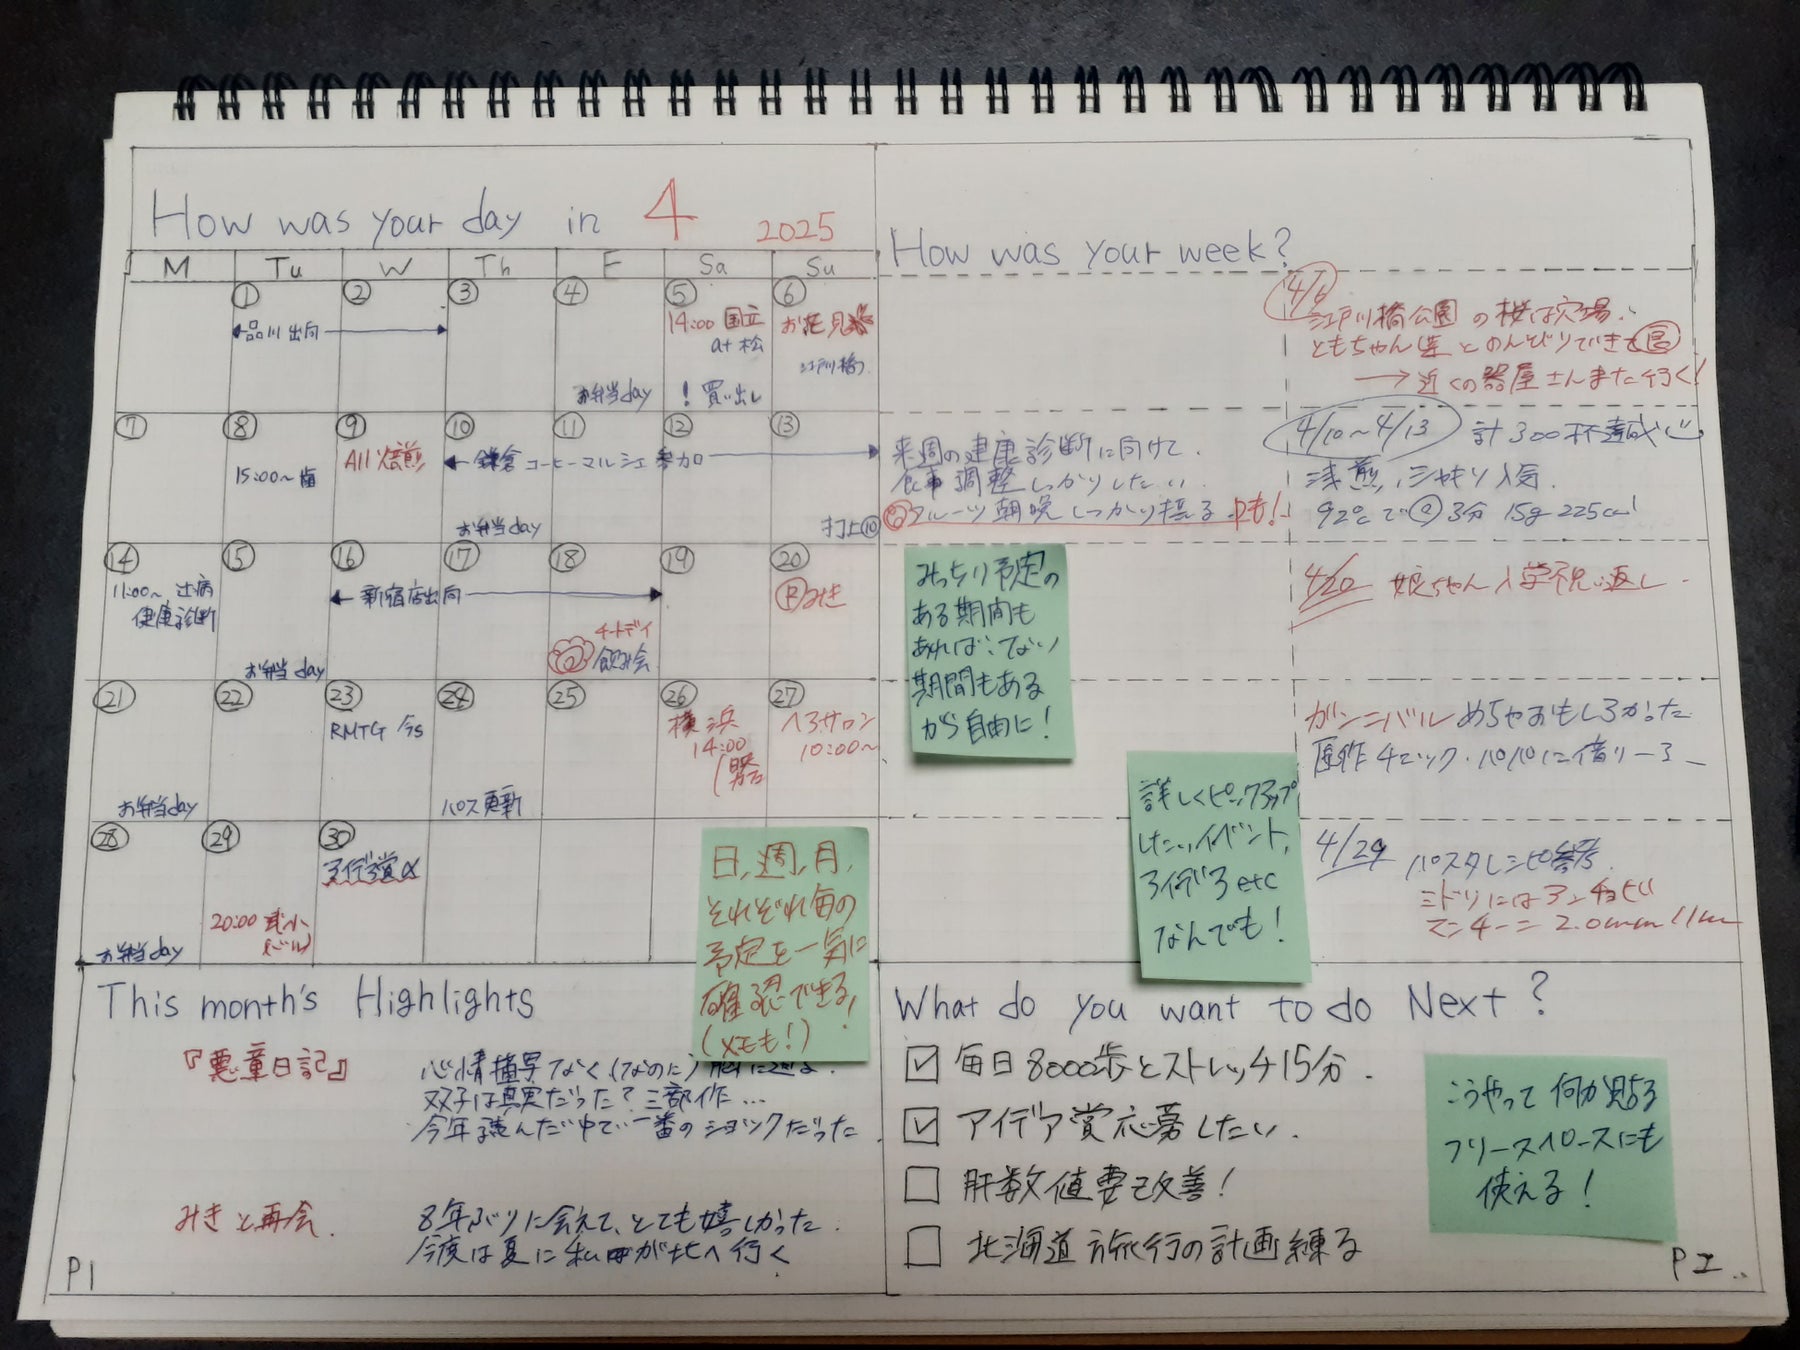 How was your day in 4 2025
M Tu W Th F Sa Su
① ② ③ ④ ⑤ ⑥
品川出向
14:00 国立
at 松
! 買い出し
お花見
江戸川橋
お弁当day
⑦ ⑧ ⑨ ⑩ ⑪ ⑫ ⑬
15:00~ 歯
All 焙煎
鎌倉 コーヒーマルシェ 参加
お弁当day
打上⑩
⑭ ⑮ ⑯ ⑰ ⑱ ⑲ ⑳
11:00~
健康診断
お弁当day
新宿店出向
チートデイ
飲み会
みき
㉑ ㉒ ㉓ ㉔ ㉕ ㉖ ㉗
お弁当day
RMTG
パス更新
横浜
14:00
ヘアサロン
10:00~
㉘ ㉙ ㉚
お弁当day
20:00
アイデア賞〆
日,週,月,
それぞれ毎の
予定を一気に
確認できる!
(メモも!)
How was your week?
4/6
江戸川橋公園の桜は穴場.
ともちゃん達とのんびりできた
→近くの器屋さんまた行く!
来週の健康診断に向けて
食事調整しっかりしたい
フルーツ朝晩しっかり摂る
4/10~4/13 計300杯達成
浅煎, シャキリ人気.
92℃で 3分 15g 225cc!
みっちり予定の
ある期間も
あれば、てない
期間もある
から自由に!
4/20 娘ちゃん入学祝い返し
ガンニバル めちゃおもしろかった
原作チェック・パパに借りーる
詳しくピックアップ
したいイベント,
アイデアetc
なんでも!
4/29 パスタレシピ参考.
ミドリにはアンチョビ
マンチーニ 2.0mm 11m
This month's Highlights
『悪童日記』
心情描写なく(なのに)
双子は真実だった?三部作…
今年読んだ中で一番のショックだった
みきと再会.
8年ぶりに会えて、とても嬉しかった.
今度は夏に私が北へ行く
P1
What do you want to do Next?
☑ 毎日8000歩とストレッチ15分.
☑ アイデア賞応募したい.
□ 肝数値要改善!
□ 北海道旅行の計画練る
こうやって何か貼る
フリースペースにも
使える!